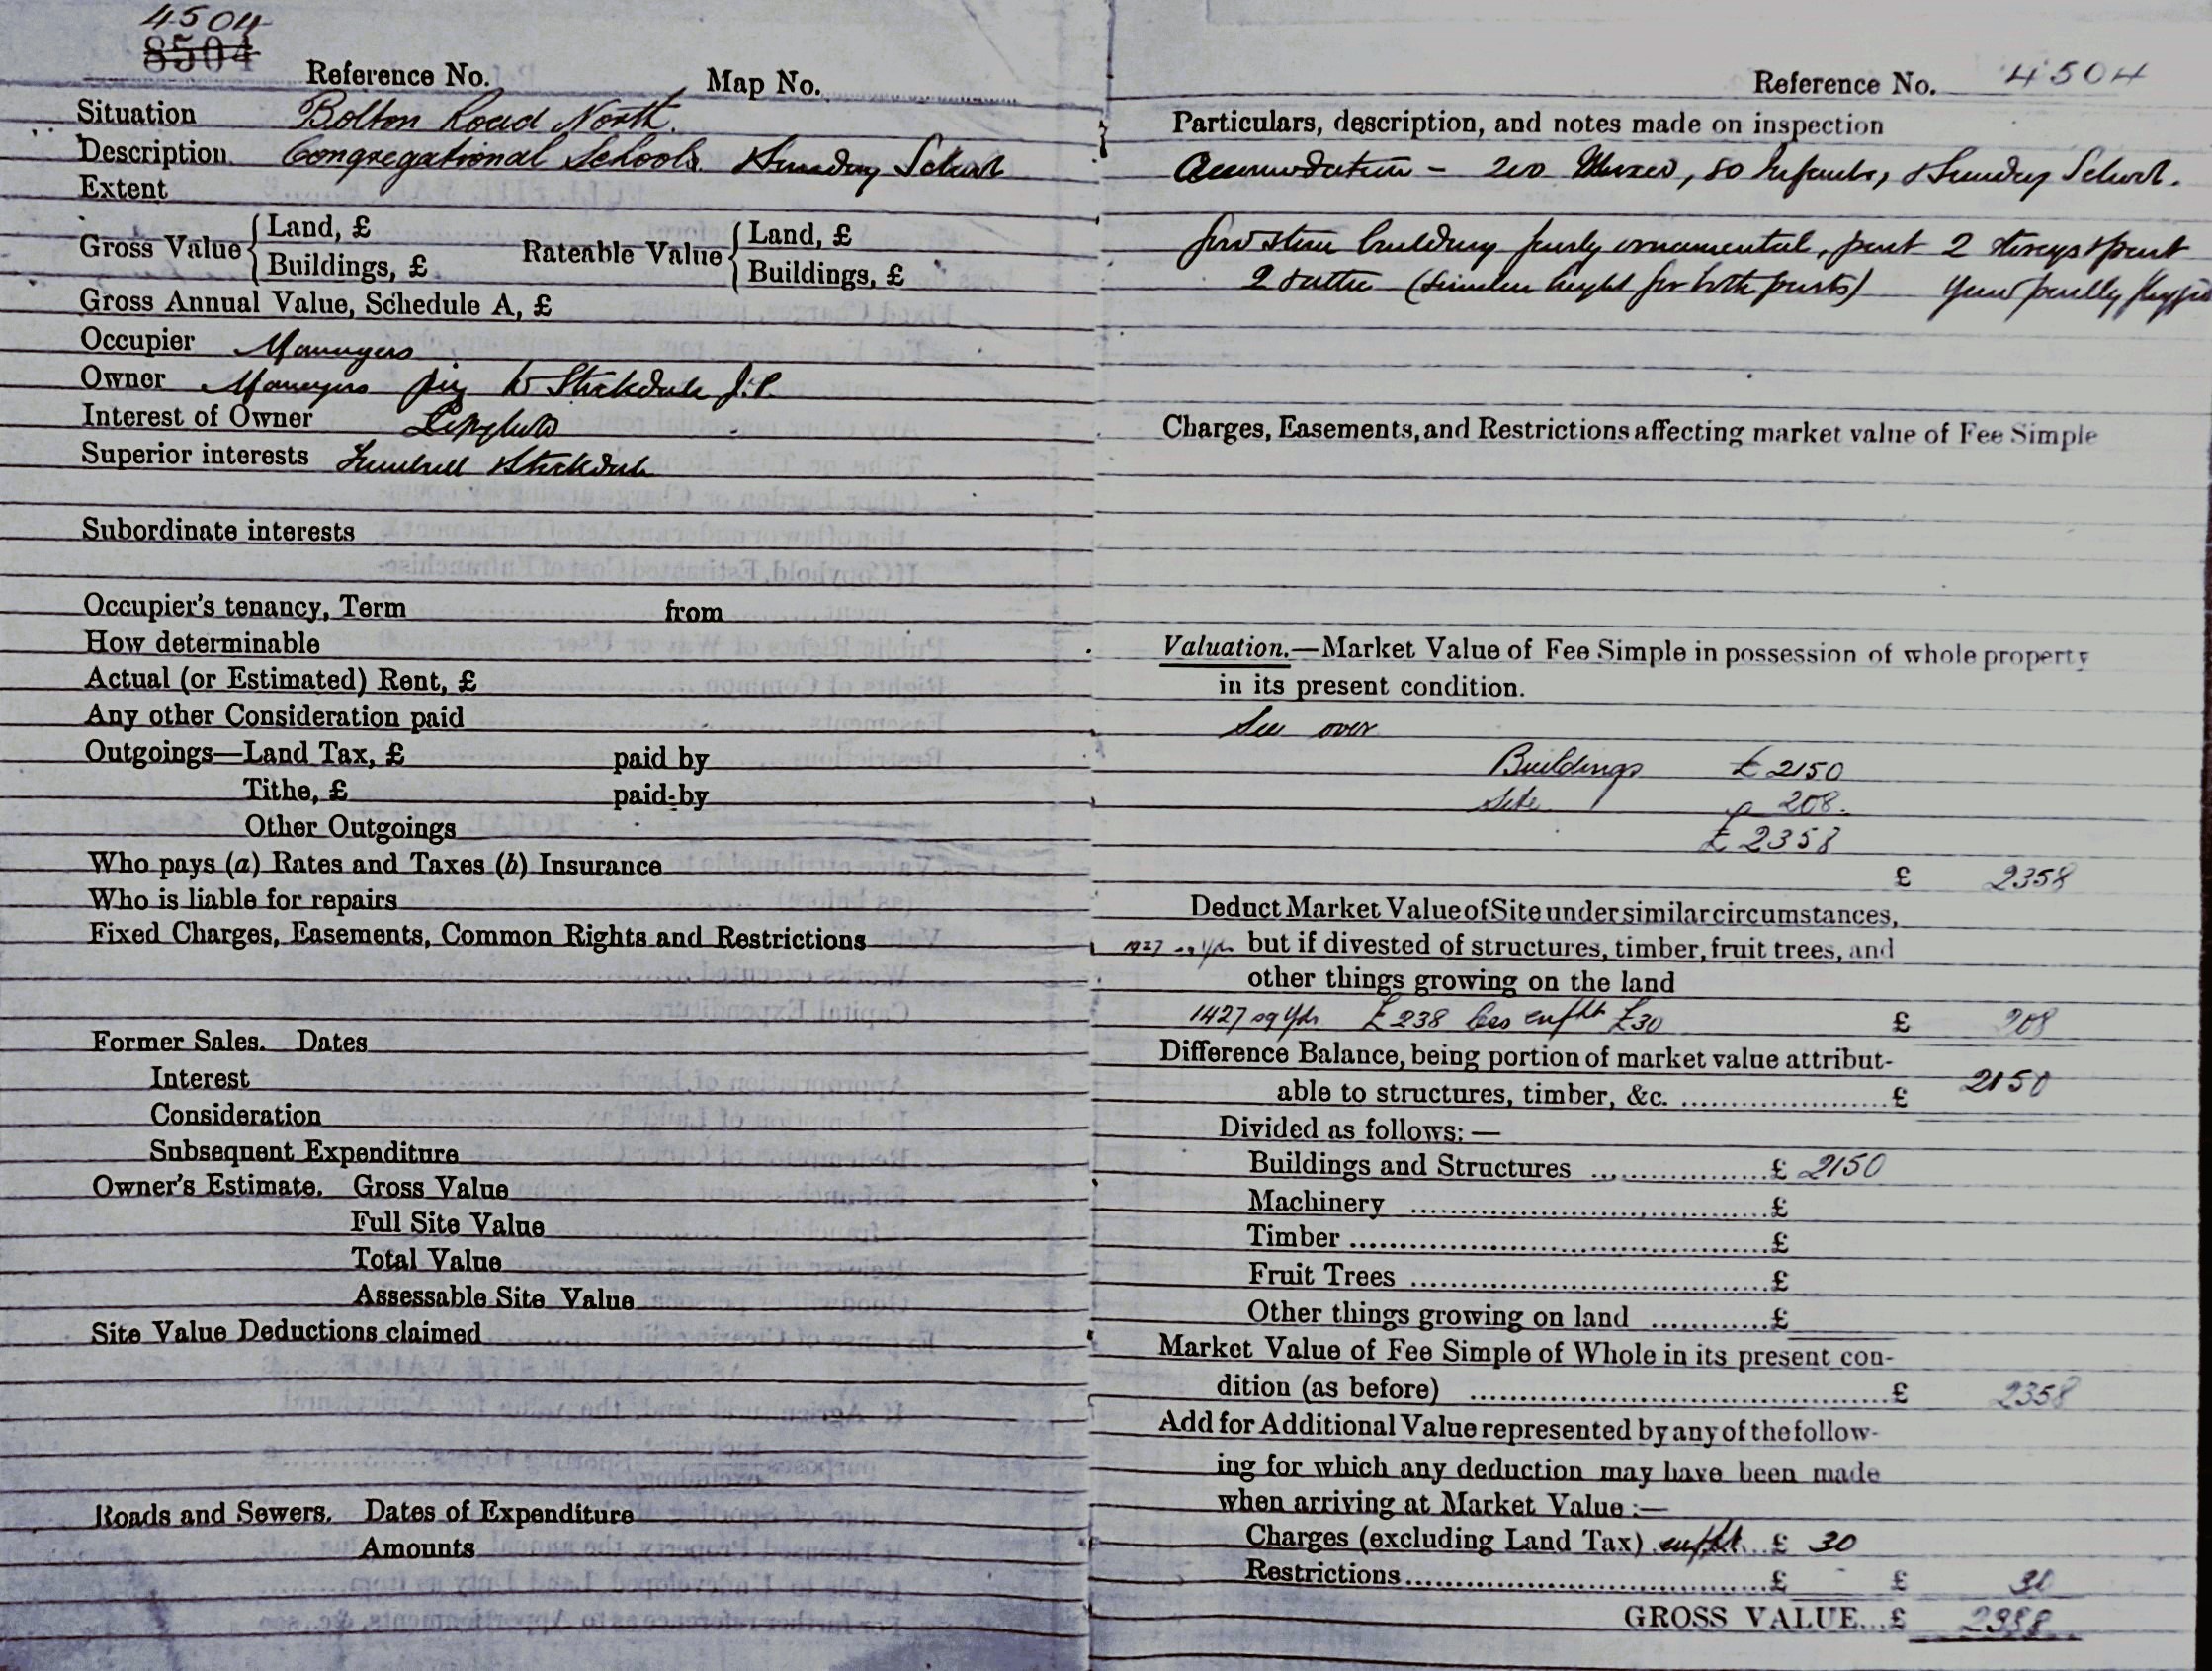 4504
8504
Reference No. Map No.
Situation Bolton Road North.
Description Congregational Schools. & Sunday School
Extent
Gross Value { Land, £ Buildings, £ Rateable Value { Land, £ Buildings, £
Gross Annual Value, Schedule A, £
Occupier Managers
Owner Managers W Stockdale J.P.
Interest of Owner
Superior interests Stockdale
Subordinate interests
Occupier's tenancy, Term from
How determinable
Actual (or Estimated) Rent, £
Any other Consideration paid
Outgoings—Land Tax, £ paid by
Tithe, £ paid by
Other Outgoings
Who pays (a) Rates and Taxes (b) Insurance
Who is liable for repairs
Fixed Charges, Easements, Common Rights and Restrictions
Former Sales. Dates
Interest
Consideration
Subsequent Expenditure
Owner's Estimate. Gross Value
Full Site Value
Total Value
Assessable Site Value
Site Value Deductions claimed
Roads and Sewers. Dates of Expenditure
Amounts
Reference No. 4504
Particulars, description, and notes made on inspection
Accomodation - 200 Mixed, 80 Infants, & Sunday School.
stone building fairly ornamental, part 2 storeys & part
2 & attic (similar height for both parts) Yard partly
Charges, Easements, and Restrictions affecting market value of Fee Simple
Valuation.—Market Value of Fee Simple in possession of whole property
in its present condition.
See over
Buildings £ 2150
Site 208.
£ 2358
£ 2358
Deduct Market Value of Site under similar circumstances,
but if divested of structures, timber, fruit trees, and
other things growing on the land
1427 sq yds £238 less enfht £30 £ 208
Difference Balance, being portion of market value attribut-
able to structures, timber, &c. ..................... £ 2150
Divided as follows:—
Buildings and Structures ..................£ 2150
Machinery .....................................£
Timber ...........................................£
Fruit Trees ....................................£
Other things growing on land ............£
Market Value of Fee Simple of Whole in its present con-
dition (as before) ............................................£ 2358
Add for Additional Value represented by any of the follow-
ing for which any deduction may have been made
when arriving at Market Value:—
Charges (excluding Land Tax) enfht... £ 30
Restrictions.....................................£ £ 30
GROSS VALUE...£ 2388